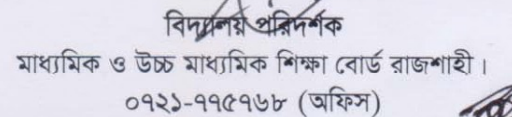 বিদ্যালয় পরিদর্শক
মাধ্যমিক ও উচ্চ মাধ্যমিক শিক্ষা বোর্ড রাজশাহী ।
০৭২১-৭৭৫৭৬৮ (অফিস)